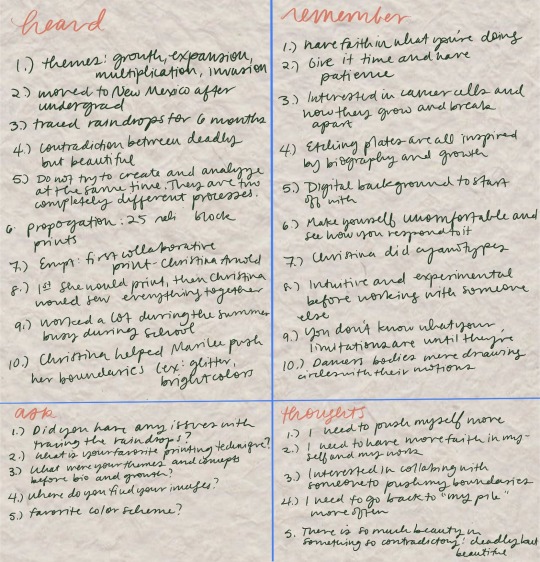 heard
1.) themes: growth, expansion,
multiplication, invasion
2.) moved to New Mexico after
undergrad
3.) traced raindrops for 6 months
4.) contradiction between deadly
but beautiful
5.) Do not try to create and analyze
at the same time. They are two
completely different processes.
6. propogation: 25 reli block
prints
7.) Empt: first collaborative
print - Christina Arnold
8.) 1st She would print, then Christina
would sew everything together
9.) worked a lot during the summer
busy during school
10.) Christina helped Marilee push
her boundaries (ex: glitter,
bright colors
remember
1.) have faith in what you're doing
2.) Give it time and have
patience
3.) Interested in cancer cells and
how they grow and break
apart
4.) Etching plates are all inspired
by biography and growth
5.) Digital background to start
off with
6.) Make yourself uncomfortable and
see how you respond to it
7.) Christina did cyanotypes
8.) Intuitive and experimental
before working with someone
else
9.) you don't know what your
limitations are until they're
10.) Dancers bodies were drawing
circles with their motions
ask
1.) Did you have any issues with
tracing the raindrops?
2.) what is your favorite printing technique?
3.) What were your themes and concepts
before bio and growth?
4.) where do you find your images?
5.) favorite color scheme?
thoughts
1.) I need to push myself more
2.) I need to have more faith in my-
self and my work
3.) Interested in collabing with
someone to push my boundaries
4.) I need to go back to "my pile"
more often
5. There is so much beauty in
something so contradictory: deadly but
beautiful